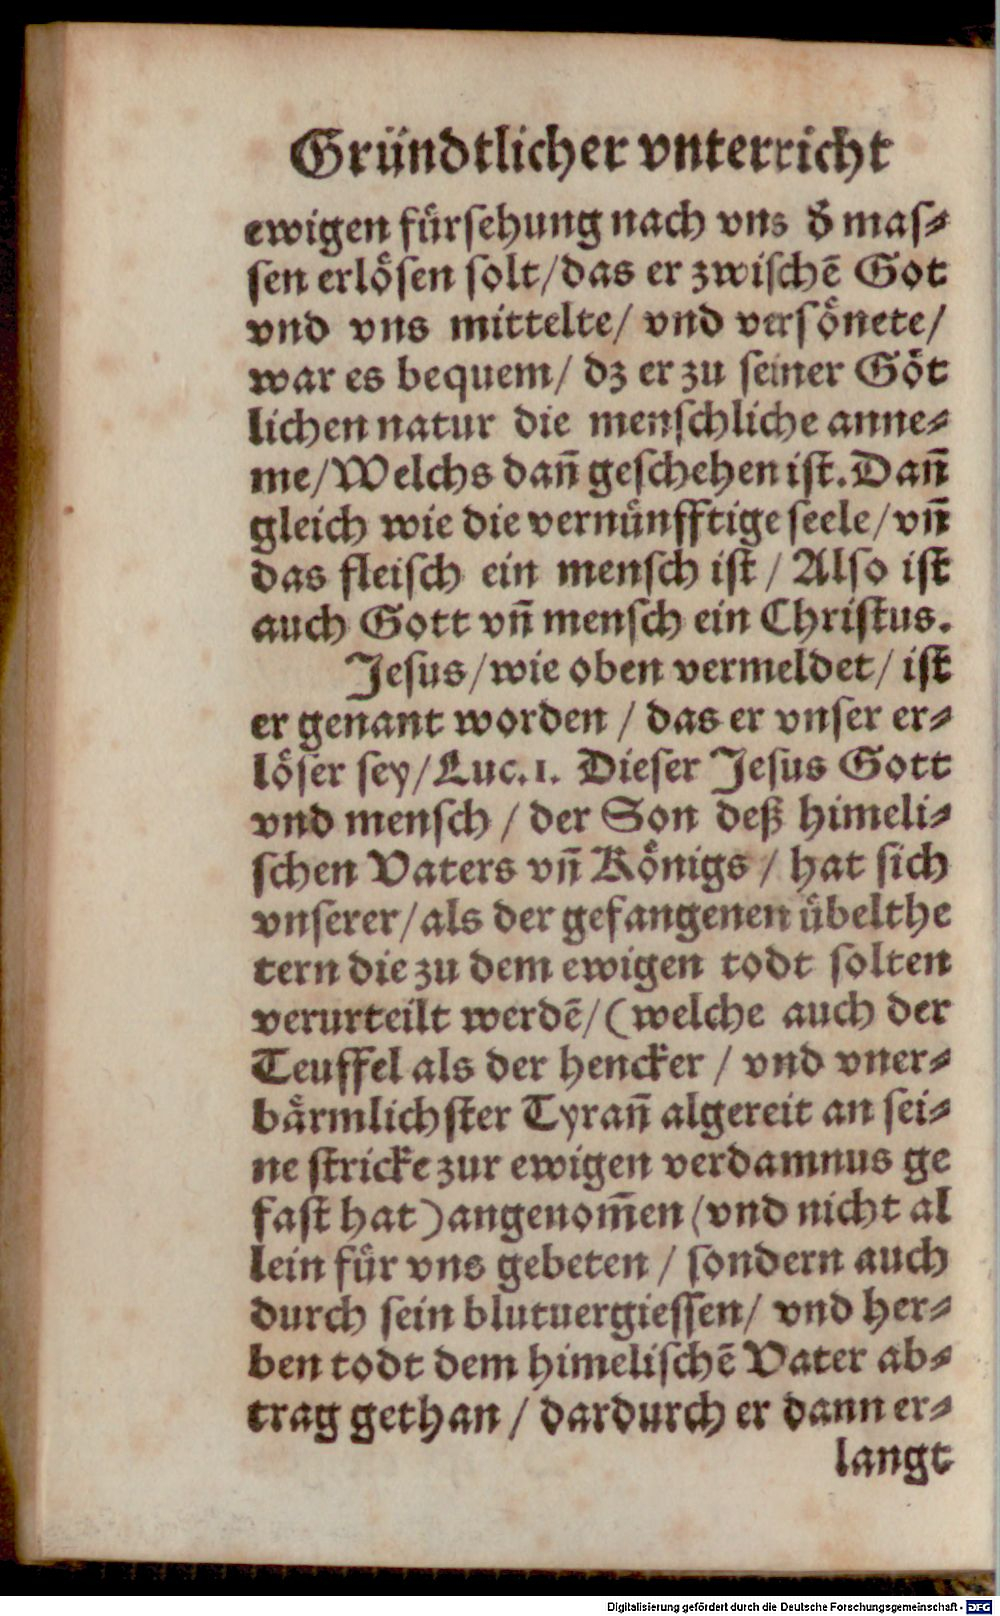 Gründtlicher vnterricht
ewigen fürsehung nach vns d̕ mas⸗
sen erlösen solt/das er zwischẽ Got
vnd vns mittelte/ vnd versönete/
war es bequem/ dz er zu seiner Göt
lichen natur die menschliche anne⸗
me/Welchs dañ geschehen ist. Dañ
gleich wie die vernünfftige seele/vñ
das fleisch ein mensch ist/ Also ist
auch Gott vñ mensch ein Christus.
Jesus/wie oben vermeldet/ ist
er genant worden / das er vnser er⸗
löser sey/Luc.1. Dieser Jesus Gott
vnd mensch / der Son deß himeli⸗
schen Vaters vñ Königs / hat sich
vnserer/als der gefangenen übelthe
tern die zu dem ewigen todt solten
verurteilt werdẽ/(welche auch der
Teuffel als der hencker / vnd vner⸗
bärmlichster Tyrañ algereit an sei⸗
ne stricke zur ewigen verdamnus ge
fast hat)angenom̃en/vnd nicht al
lein für vns gebeten / sondern auch
durch sein blutuergiessen/ vnd her⸗
ben todt dem himelischẽ Vater ab⸗
trag gethan / dardurch er dann er⸗
langt
Digitalisierung gefördert durch die Deutsche Forschungsgemeinschaft - DFG